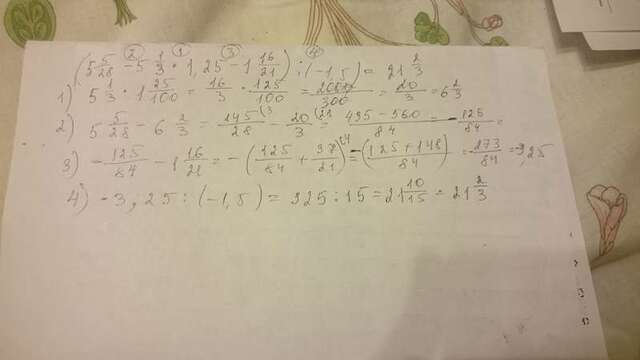 ② ① ③ ④
(5 5/28 - 5 1/3 · 1,25 - 1 16/21) : (-1,5) = 21 2/3
1) 5 1/3 · 1 25/100 = 16/3 · 125/100 = 2000/300 = 20/3 = 6 2/3
2) 5 5/28 - 6 2/3 = 145/28 (3 - 20/3 (28 = 435-560/84 = -125/84 =
3) -125/84 - 1 16/21 = -(125/84 + 37/21 (4) = -(125+148/84) = -273/84 = -3,25
4) -3,25 : (-1,5) = 325 : 15 = 21 10/15 = 21 2/3